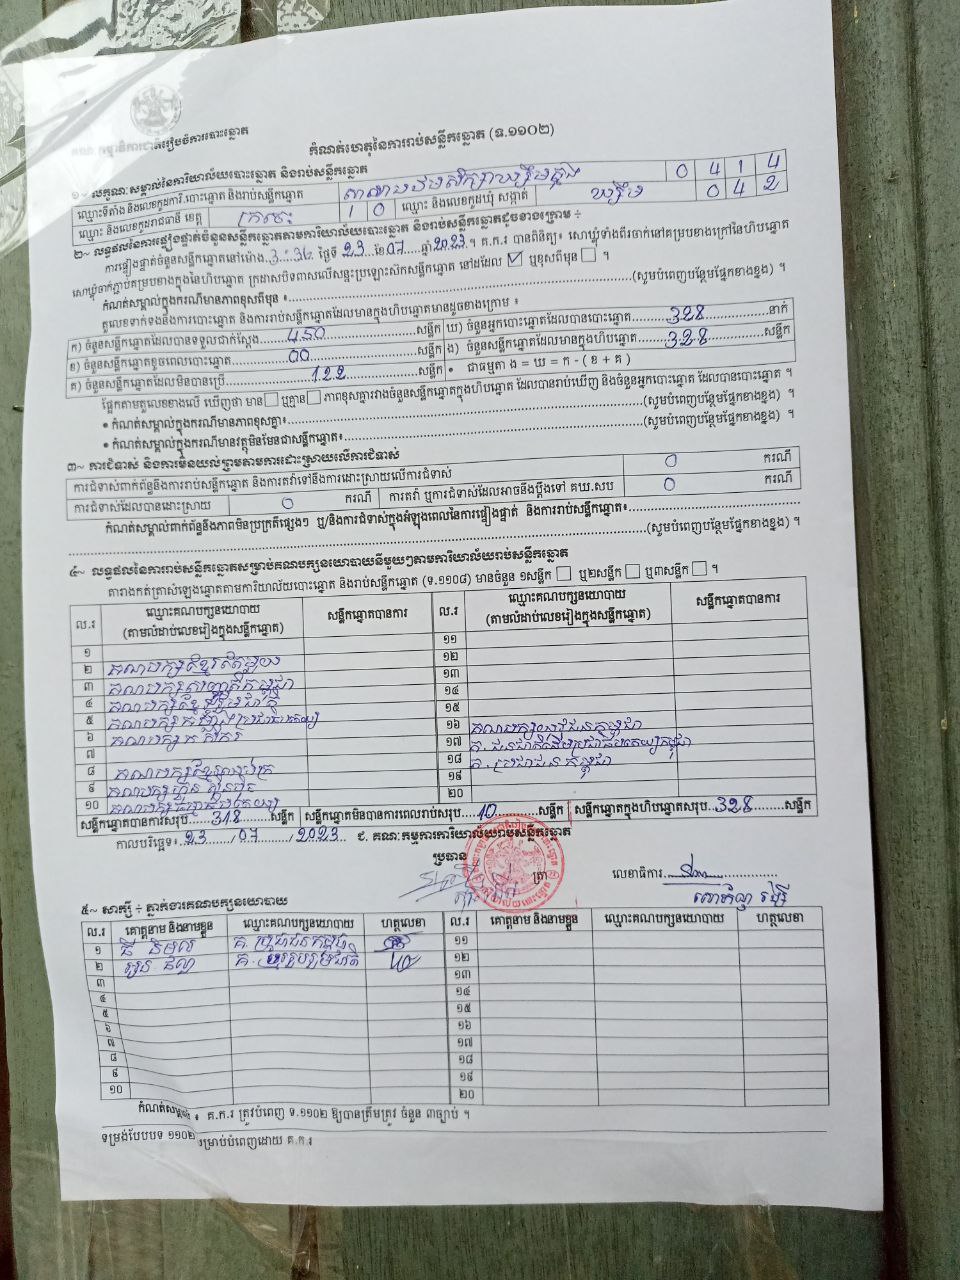 គណៈកម្មាធិការជាតិរៀបចំការបោះឆ្នោត
កំណត់ហេតុនៃការរាប់សន្លឹកឆ្នោត (ទ.១១០២)
១~ លក្ខណៈសម្គាល់នៃការិយាល័យបោះឆ្នោត និងរាប់សន្លឹកឆ្នោត
ឈ្មោះទីតាំង និងលេខកូដការិ.បោះឆ្នោត និងរាប់សន្លឹកឆ្នោត 0 4 1 4
ឈ្មោះ និងលេខកូដរាជធានី ខេត្ត ក្រចេះ 1 0 ឈ្មោះ និងលេខកូដឃុំ សង្កាត់ ឃ្សឹម 0 4 2
២~ លទ្ធផលនៃការផ្ទៀងផ្ទាត់ចំនួនសន្លឹកឆ្នោតតាមការិយាល័យបោះឆ្នោត និងរាប់សន្លឹកឆ្នោតដូចខាងក្រោម ÷
ការផ្ទៀងផ្ទាត់ចំនួនសន្លឹកឆ្នោតនៅម៉ោង 3:36 ថ្ងៃទី 23 ខែ 07 ឆ្នាំ 2023 ។ គ.ក.រ បានពិនិត្យ៖ សោឃ្មុំទាំងពីរចាក់នៅគម្របខាងក្រៅនៃហិបឆ្នោត
សោឃ្មុំចាក់ភ្ជាប់គម្របខាងក្នុងនៃហិបឆ្នោត ក្រដាសបិទពាសលើសន្ទះប្រឡោះស៊កសន្លឹកឆ្នោត នៅដដែល ☑ ឬខុសពីមុន ☐ ។
កំណត់សម្គាល់ក្នុងករណីមានភាពខុសពីមុន ៖ (សូមបំពេញបន្ថែមផ្នែកខាងខ្នង) ។
តួលេខទាក់ទងនឹងការបោះឆ្នោត និងការរាប់សន្លឹកឆ្នោតដែលមានក្នុងហិបឆ្នោតមានដូចខាងក្រោម ៖
ក) ចំនួនសន្លឹកឆ្នោតដែលបានទទួលជាក់ស្តែង 450 សន្លឹក ឃ) ចំនួនអ្នកបោះឆ្នោតដែលបានបោះឆ្នោត 328 នាក់
ខ) ចំនួនសន្លឹកឆ្នោតខូចពេលបោះឆ្នោត 00 សន្លឹក ង) ចំនួនសន្លឹកឆ្នោតដែលមានក្នុងហិបឆ្នោត 328 សន្លឹក
គ) ចំនួនសន្លឹកឆ្នោតដែលមិនបានប្រើ 122 សន្លឹក • ជាធម្មតា ង = ឃ = ក - ( ខ + គ )
ផ្អែកតាមតួលេខខាងលើ ឃើញថា មាន ☐ ឬគ្មាន ☐ ភាពខុសគ្នារវាងចំនួនសន្លឹកឆ្នោតក្នុងហិបឆ្នោត ដែលបានរាប់ឃើញ និងចំនួនអ្នកបោះឆ្នោត ដែលបានបោះឆ្នោត ។
• កំណត់សម្គាល់ក្នុងករណីមានភាពខុសគ្នា៖ (សូមបំពេញបន្ថែមផ្នែកខាងខ្នង) ។
• កំណត់សម្គាល់ក្នុងករណីមានវត្ថុមិនមែនជាសន្លឹកឆ្នោត៖ (សូមបំពេញបន្ថែមផ្នែកខាងខ្នង) ។
៣~ ការជំទាស់ និងការមិនយល់ព្រមតាមការដោះស្រាយលើការជំទាស់
ការជំទាស់ពាក់ព័ន្ធនឹងការរាប់សន្លឹកឆ្នោត និងការតវ៉ាទៅនឹងការដោះស្រាយលើការជំទាស់ 0 ករណី
ការជំទាស់ដែលបានដោះស្រាយ 0 ករណី ការតវ៉ា ឬការជំទាស់ដែលអាចនឹងប្តឹងទៅ គឃ.សប 0 ករណី
កំណត់សម្គាល់ពាក់ព័ន្ធនឹងភាពមិនប្រក្រតីផ្សេងៗ ឬ/និងការជំទាស់ក្នុងអំឡុងពេលនៃការផ្ទៀងផ្ទាត់ និងការរាប់សន្លឹកឆ្នោត៖
(សូមបំពេញបន្ថែមផ្នែកខាងខ្នង) ។
៤~ លទ្ធផលនៃការរាប់សន្លឹកឆ្នោតសម្រាប់គណបក្សនយោបាយនីមួយៗតាមការិយាល័យរាប់សន្លឹកឆ្នោត
តារាងកត់ត្រាសំឡេងឆ្នោតតាមការិយាល័យបោះឆ្នោត និងរាប់សន្លឹកឆ្នោត (ទ.១១០៨) មានចំនួន ១សន្លឹក ☐ ឬ២សន្លឹក ☐ ឬ៣សន្លឹក ☐ ។
ល.រ ឈ្មោះគណបក្សនយោបាយ (តាមលំដាប់លេខរៀងក្នុងសន្លឹកឆ្នោត) សន្លឹកឆ្នោតបានការ ល.រ ឈ្មោះគណបក្សនយោបាយ (តាមលំដាប់លេខរៀងក្នុងសន្លឹកឆ្នោត) សន្លឹកឆ្នោតបានការ
១ ១១
២ គណបក្សខ្មែរតែមួយ ១២
៣ ១៣
៤ ១៤
៥ ១៥
៦ គណបក្សកសិករ ១៦ គណបក្សយុវជនកម្ពុជា
៧ ១៧ គ. ជនជាតិដើមប្រជាធិបតេយ្យកម្ពុជា
៨ ១៨ គ. ប្រជាជនកម្ពុជា
៩ គណបក្សហ្វ៊ុនស៊ិនប៉ិច ១៩
១០ ២០
សន្លឹកឆ្នោតបានការសរុប 318 សន្លឹក សន្លឹកឆ្នោតមិនបានការពេលរាប់សរុប 10 សន្លឹក សន្លឹកឆ្នោតក្នុងហិបឆ្នោតសរុប 328 សន្លឹក
កាលបរិច្ឆេទ៖ 23 / 07 / 2023 ជ. គណៈកម្មការការិយាល័យរាប់សន្លឹកឆ្នោត
ប្រធាន
ត្រា លេខាធិការ
៥~ សាក្សី ÷ ភ្នាក់ងារគណបក្សនយោបាយ
ល.រ គោត្តនាម និងនាមខ្លួន ឈ្មោះគណបក្សនយោបាយ ហត្ថលេខា ល.រ គោត្តនាម និងនាមខ្លួន ឈ្មោះគណបក្សនយោបាយ ហត្ថលេខា
១ គ. ប្រជាជនកម្ពុជា ១១
២ ១២
៣ ១៣
៤ ១៤
៥ ១៥
៦ ១៦
៧ ១៧
៨ ១៨
៩ ១៩
១០ ២០
កំណត់សម្គាល់ ៖ គ.ក.រ ត្រូវបំពេញ ទ.១១០២ ឱ្យបានត្រឹមត្រូវ ចំនួន ៣ច្បាប់ ។
ទម្រង់បែបបទ ១១០២ សម្រាប់បំពេញដោយ គ.ក.រ